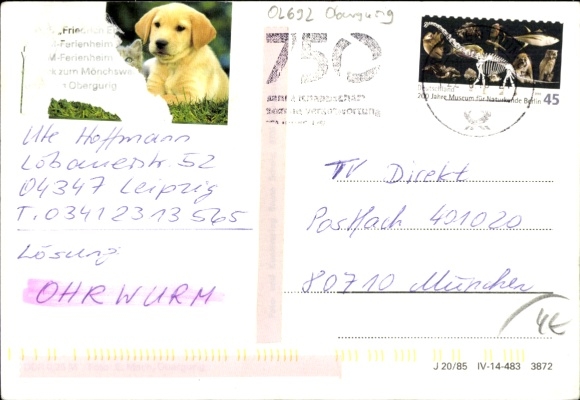 02692 Obergurig
„Friedrich E
M-Ferienheim
M-Ferienheim
k zum Mönchswa
Obergurig
750
Deutschland
200 Jahre Museum für Naturkunde Berlin 45
Ute Hoffmann
04347 Leipzig
T. 0341 23 13 565
Lösung:
OHRWURM
TV Direkt
Postfach 401020
80710 München
4€
J 20/85 IV-14-483 3872